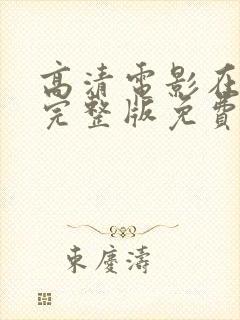 高清電影在
完整版免費
東慶濤